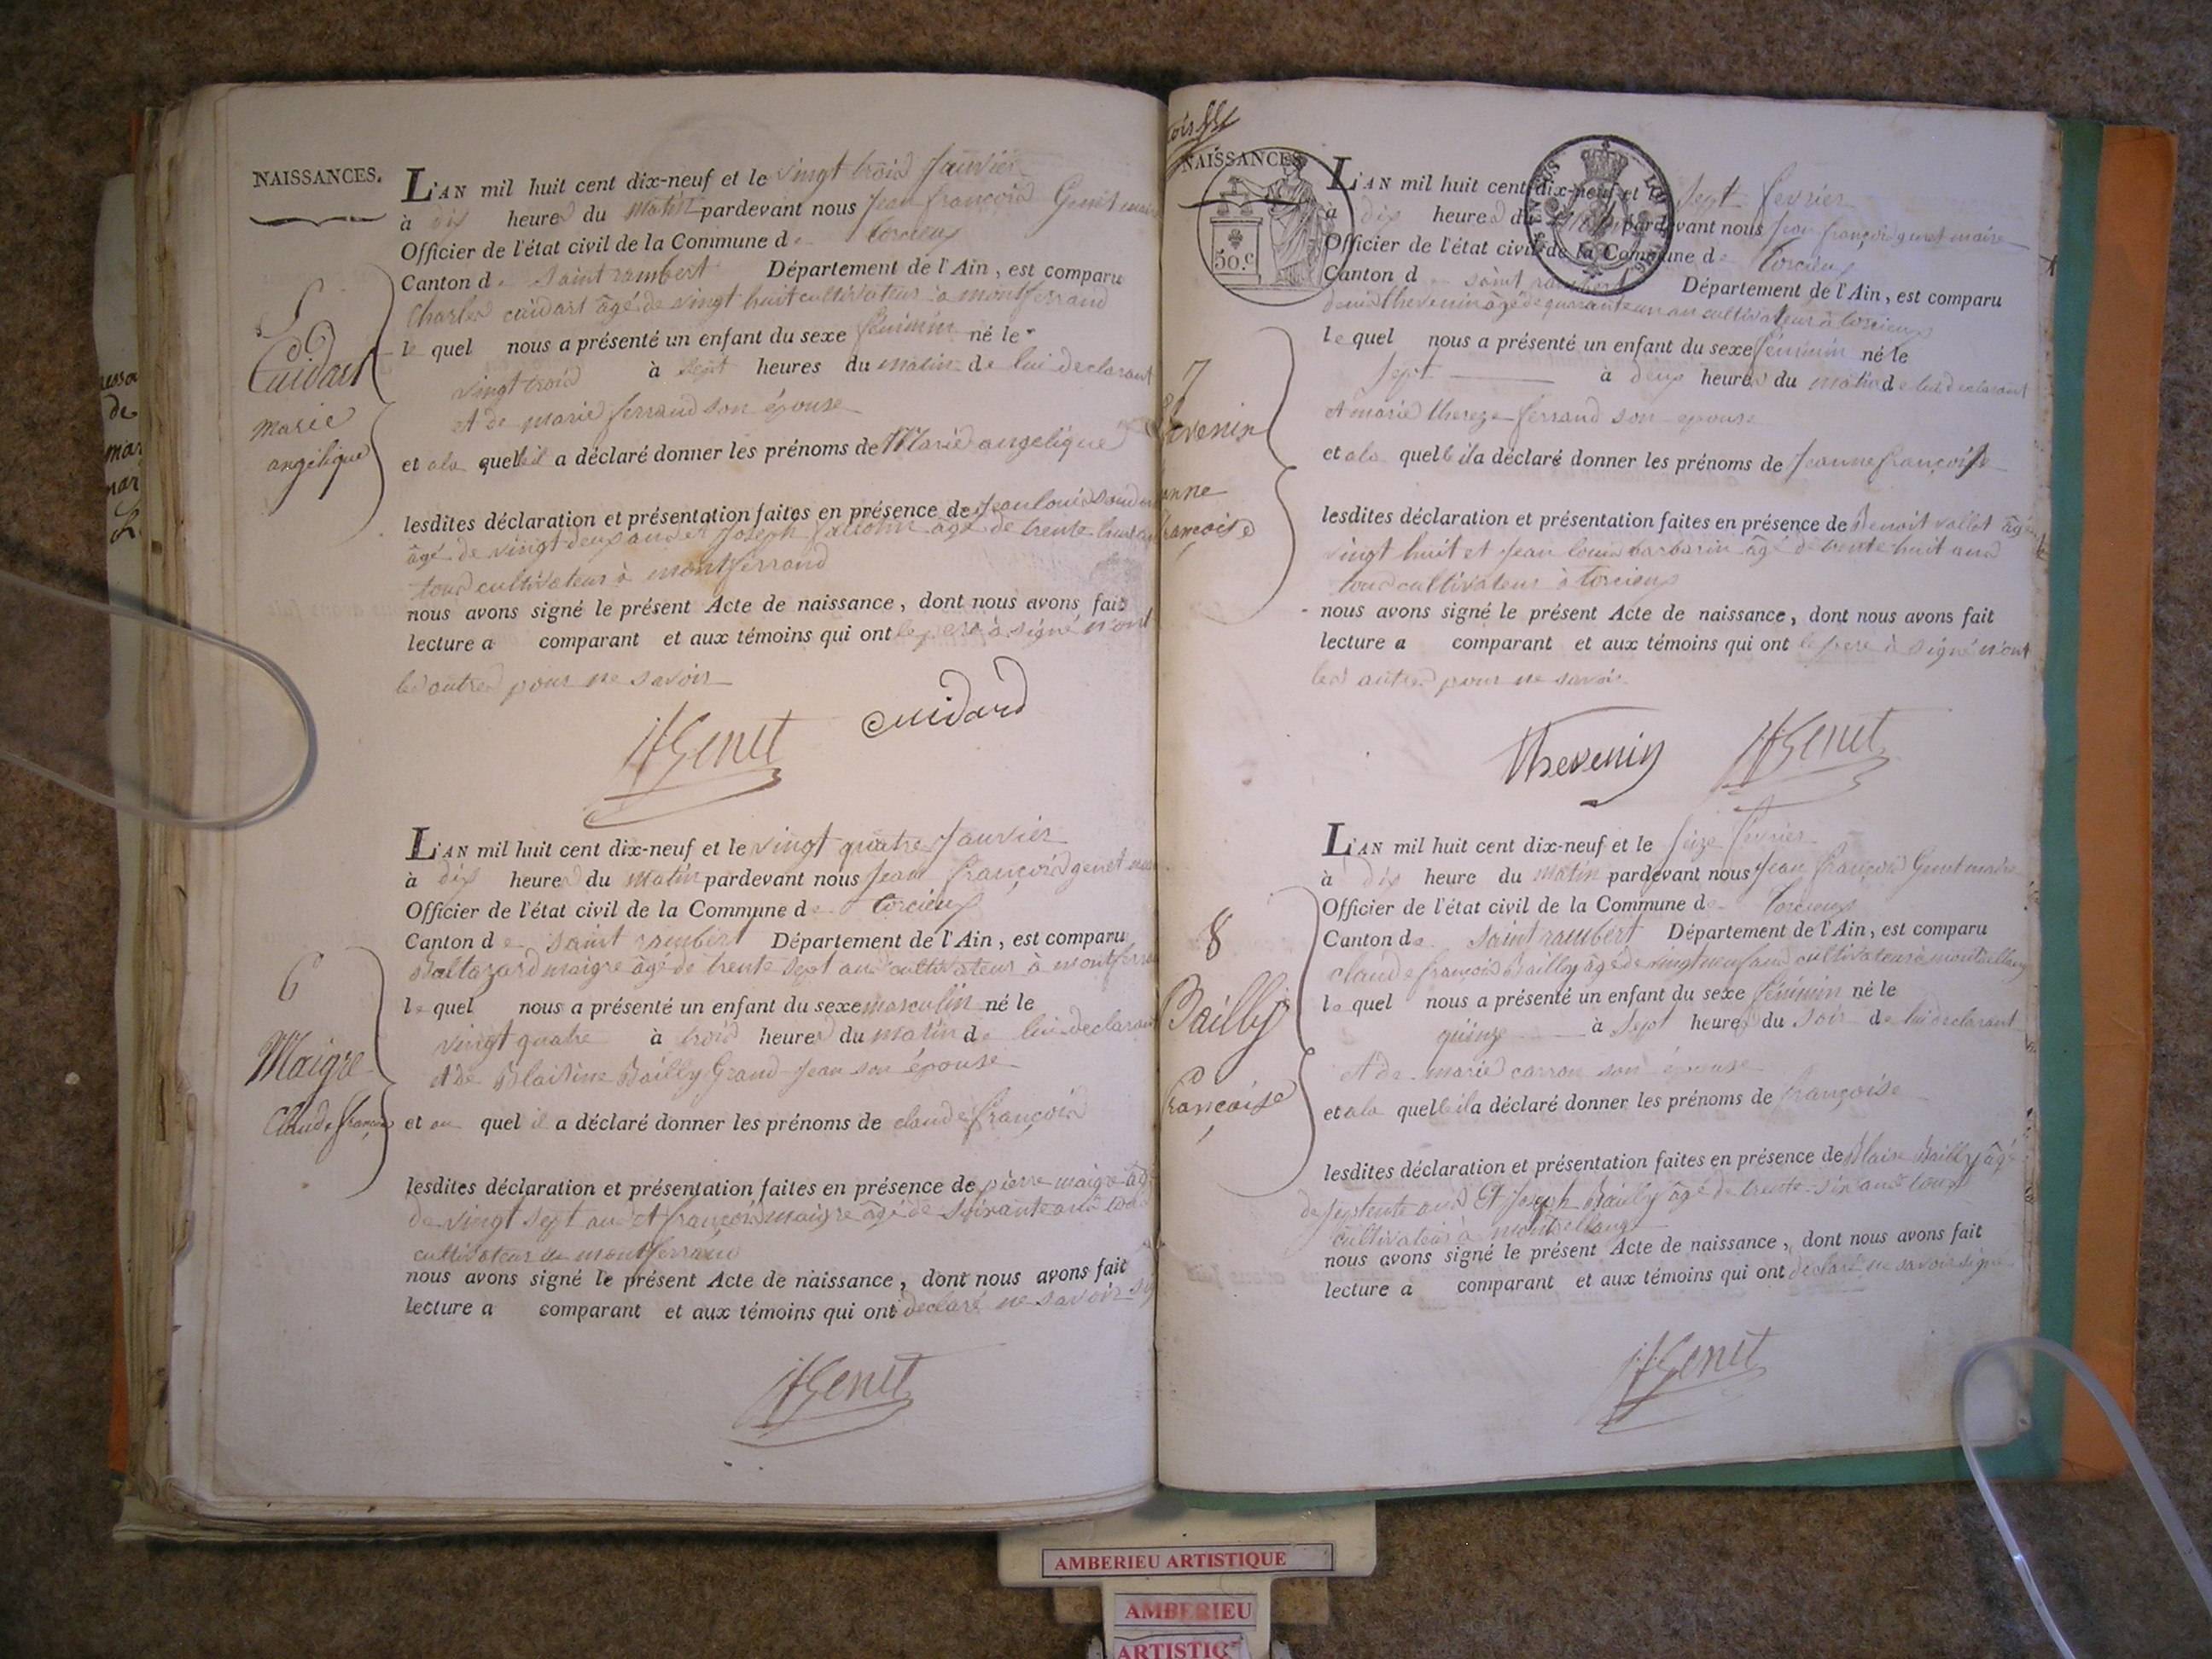 NAISSANCES.
5
Cuidart
marie
angélique
L'AN mil huit cent dix-neuf et le vingt trois Janvier
à dix heures du matin pardevant nous Jean françois Genet maire
Officier de l'état civil de la Commune de torcieux
Canton de Saint rambert Département de l'Ain, est comparu
Charles cuidart âgé de vingt huit cultivateur à montferrand
le quel nous a présenté un enfant du sexe féminin né le
vingt trois à sept heures du matin de lui declarant
et de marie ferrand son épouse
et a la quelle il a déclaré donner les prénoms de Marie angelique
lesdites déclaration et présentation faites en présence de Jean louis
âgé de vingt deux ans et Joseph âgé de trente huit ans
tous cultivateurs à montferrand
nous avons signé le présent Acte de naissance, dont nous avons fait
lecture a comparant et aux témoins qui ont le pere à signé n'ont
les autres pour ne savoir
JfGenet
cuidard
6
Maigre
Claude françois
L'AN mil huit cent dix-neuf et le vingt quatre Janvier
à dix heures du matin pardevant nous Jean françois genet
Officier de l'état civil de la Commune de torcieux
Canton de Saint rambert Département de l'Ain, est comparu
Baltazard maigre âgé de trente sept ans cultivateur à montferrand
le quel nous a présenté un enfant du sexe masculin né le
vingt quatre à trois heures du matin de lui declarant
et de Blaisine Bailly Grand-Jean son épouse
et au quel il a déclaré donner les prénoms de claude françois
lesdites déclaration et présentation faites en présence de pierre maigre âgé
de vingt sept ans et françois maigre âgé de soixante ans tous
cultivateur de montferrand
nous avons signé le présent Acte de naissance, dont nous avons fait
lecture a comparant et aux témoins qui ont declaré ne savoir
JfGenet
NAISSANCES
50.c
7
evenin
anne
françoise
L'AN mil huit cent dix-neuf et le Sept fevrier
à dix heures du matin pardevant nous Jean françois genet maire
Officier de l'état civil de la Commune de torcieux
Canton de saint rambert Département de l'Ain, est comparu
denis thevenin âgé de quarante un an cultivateur à torcieux
le quel nous a présenté un enfant du sexe féminin né le
Sept à deux heures du matin de lui declarant
et marie thereze ferrand son epouse
et a la quelle il a déclaré donner les prénoms de Jeanne françoise
lesdites déclaration et présentation faites en présence de Benoit vallet âgé
vingt huit et Jean louis barbarin âgé de trente huit ans
tous cultivateur à torcieux
nous avons signé le présent Acte de naissance, dont nous avons fait
lecture a comparant et aux témoins qui ont le pere à signé n'ont
les autres pour ne savoir
Thevenin
JfGenet
8
Bailly
françoise
L'AN mil huit cent dix-neuf et le Seize fevrier
à dix heure du matin pardevant nous Jean françois Genet maire
Officier de l'état civil de la Commune de torcieux
Canton de Saint rambert Département de l'Ain, est comparu
claude françois Bailly âgé de vingt neuf ans cultivateur à
le quel nous a présenté un enfant du sexe féminin né le
quinze à Sept heures du Soir de lui declarant
et de marie carron son épouse
et a la quelle il a déclaré donner les prénoms de françoise
lesdites déclaration et présentation faites en présence de Blaise Bailly âgé
de septente ans et Joseph Bailly âgé de trente-six ans tous
cultivateurs à
nous avons signé le présent Acte de naissance, dont nous avons fait
lecture a comparant et aux témoins qui ont declaré ne savoir signé
JfGenet
AMBERIEU ARTISTIQUE
AMBERIEU
ARTISTIQ